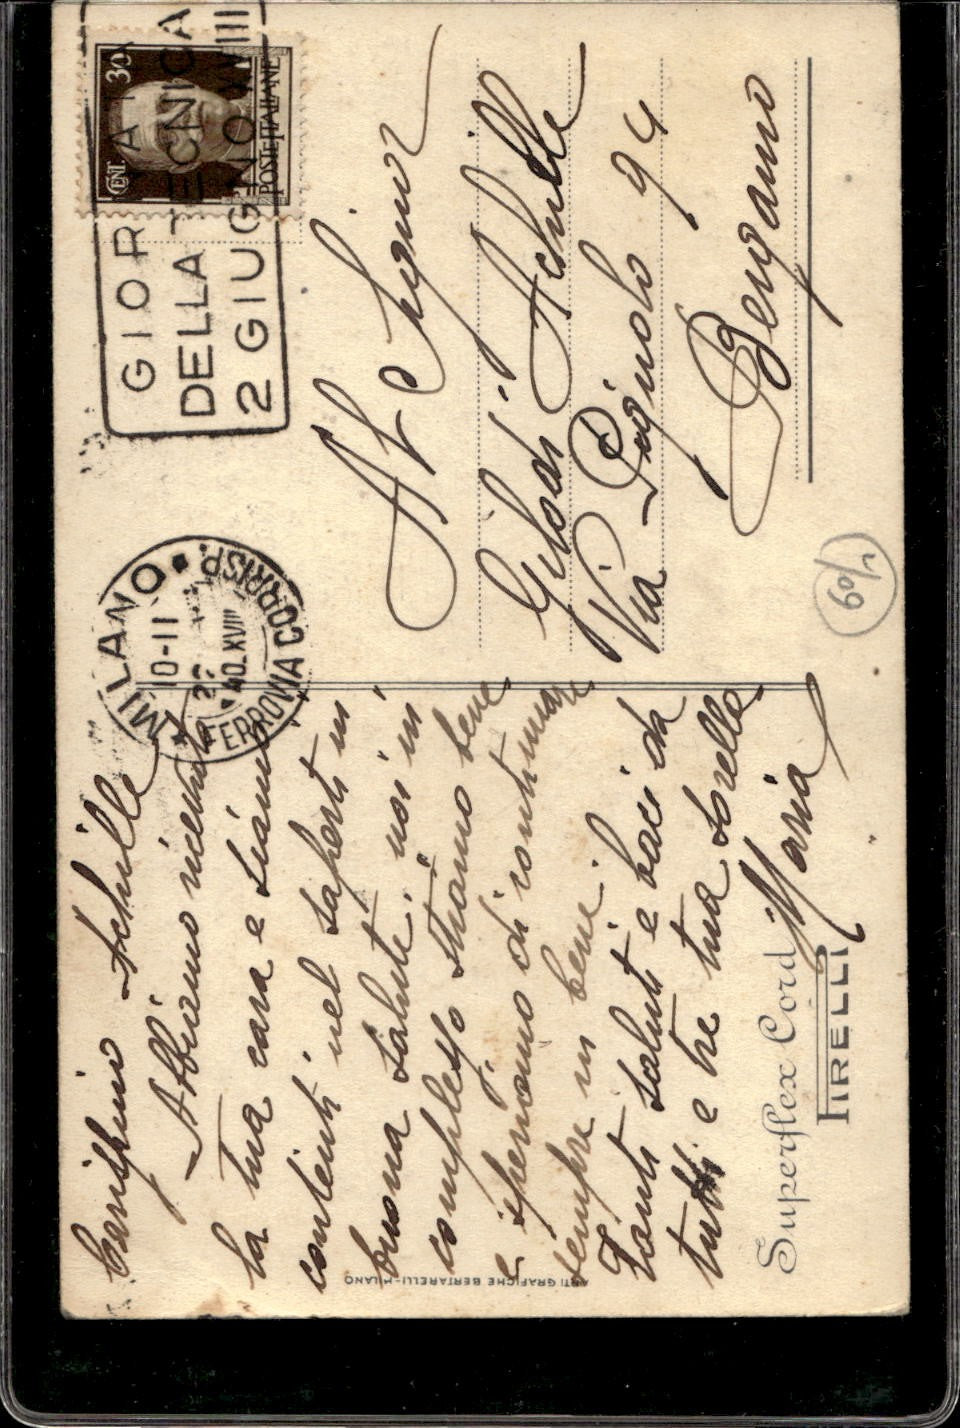 Carissimo Achille
Abbiamo ricevuto
la tua cara e siamo
contenti nel saperti in
buona salute, noi in
complesso stiamo bene
e speriamo di continuare
sempre in bene.
Tanti saluti e baci da
tutti e tre tua sorella
Maria
Superflex Cord
PIRELLI
ARTI GRAFICHE BERTARELLI-MILANO
MILANO
10-11
40 XVIII
FERROVIA CORRISP.
GIOR TA
DELLA TECNICA
2 GIUGNO XVIII
CENT. 30
POSTE ITALIANE
Al Signor
Achille
Via Pignolo 94
Bergamo